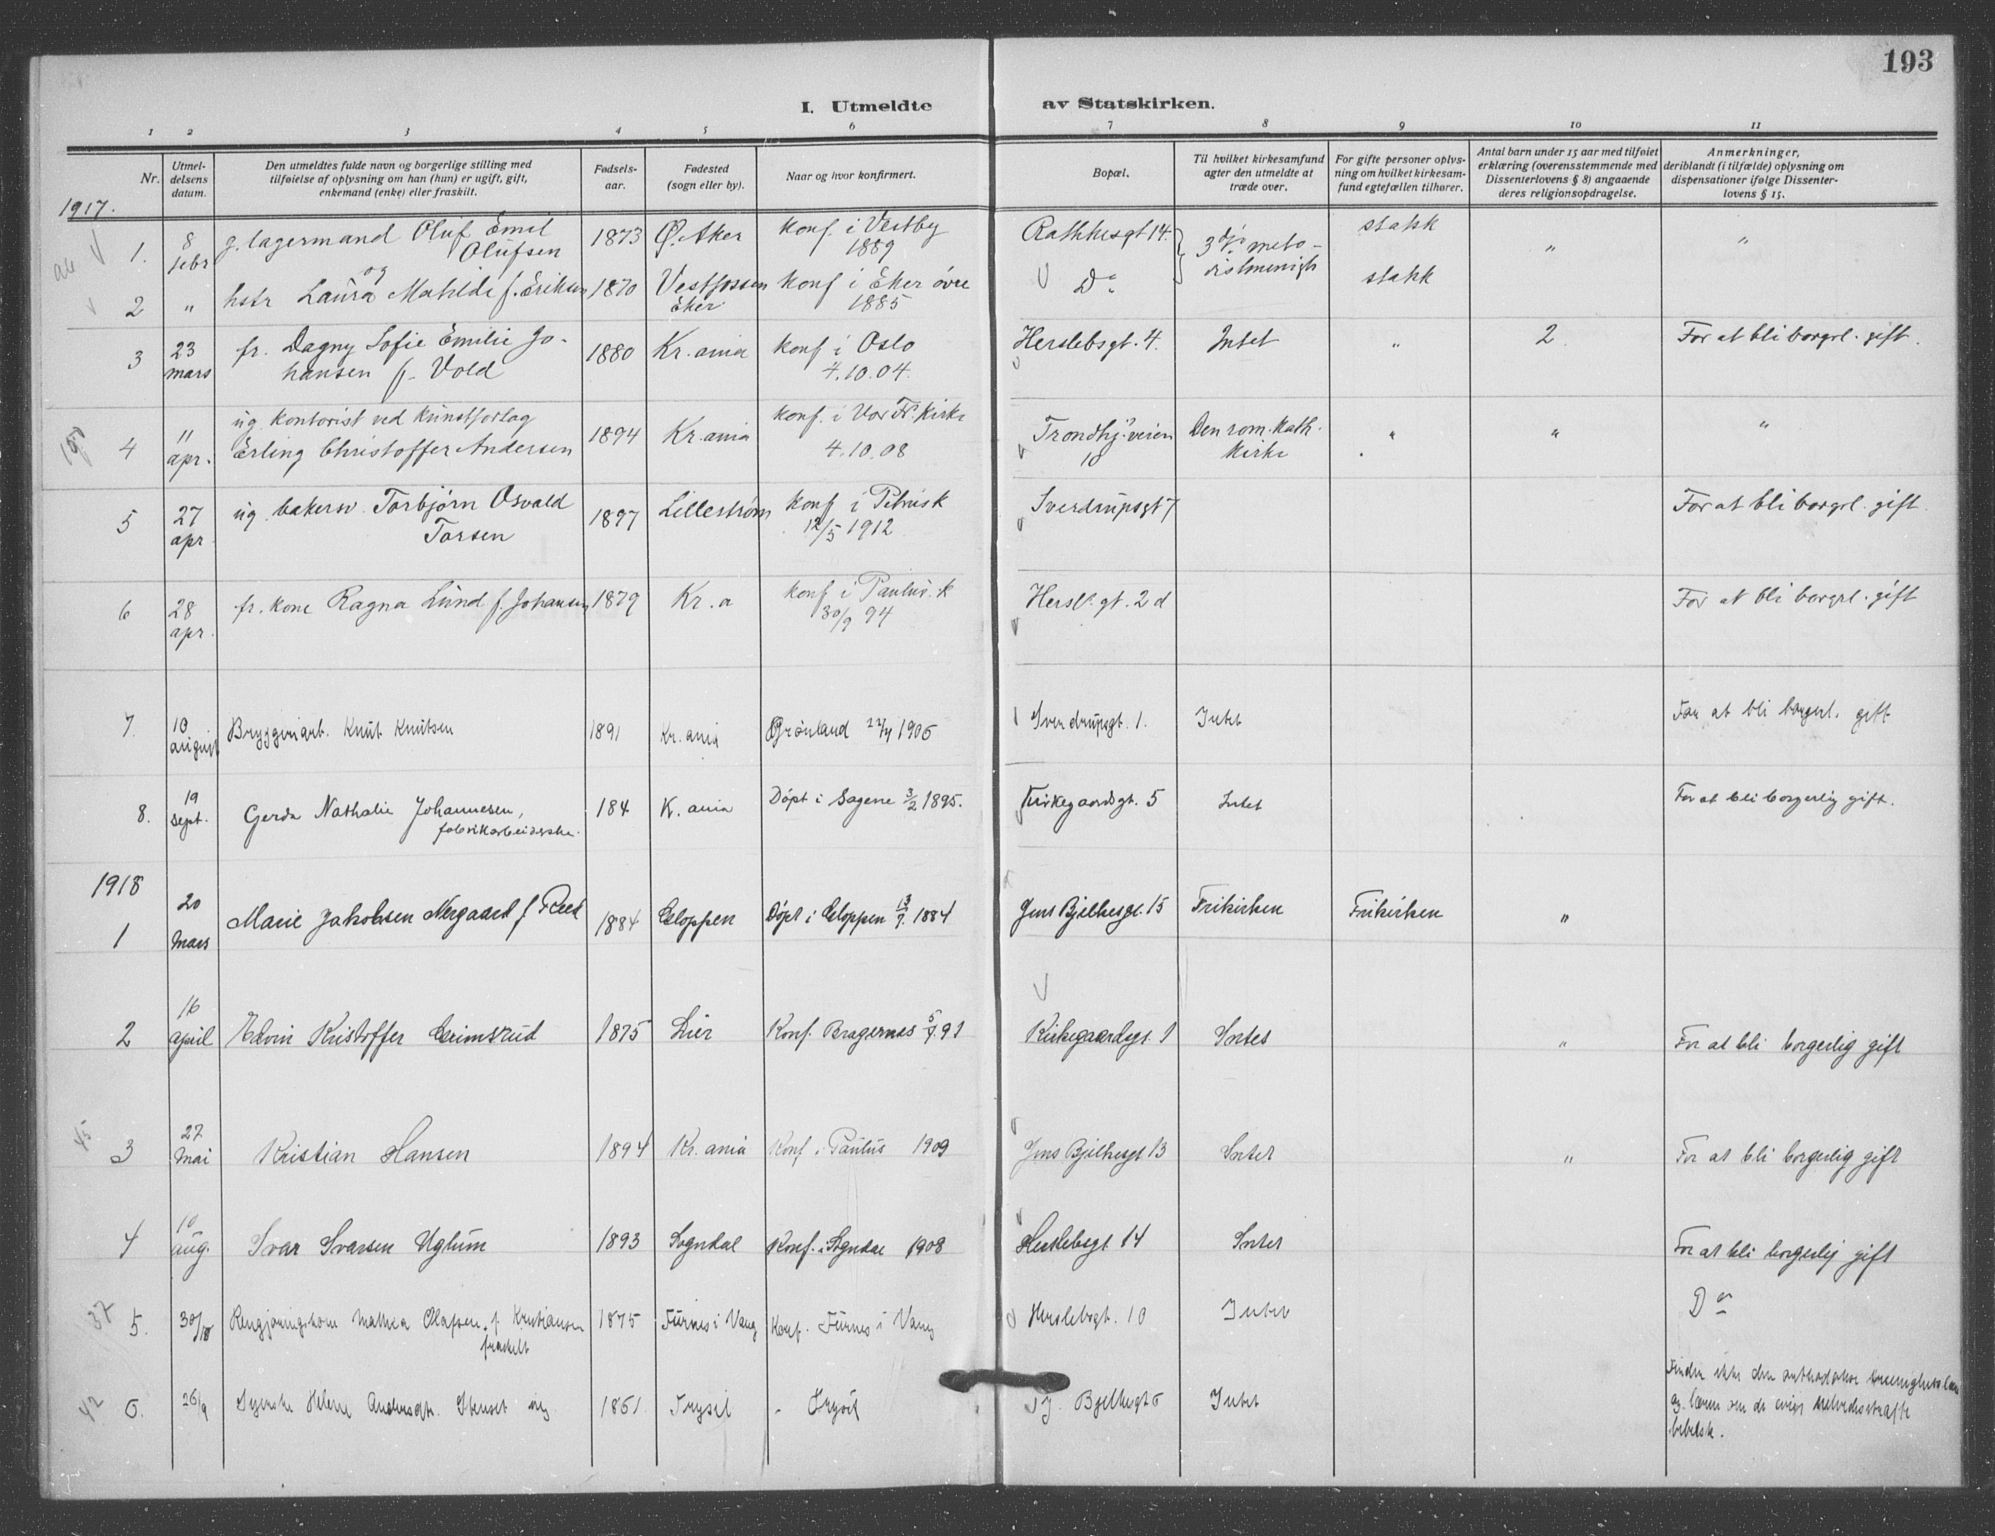 193
I. Utmeldte av Statskirken.
1 2 3 4 5 6 7 8 9 10 11
Nr.
Utmel-
delsens
datum.
Den utmeldtes fulde navn og borgerlige stilling med
tilføielse af oplysning om han (hun) er ugift, gift,
enkemand (enke) eller fraskilt.
Fødsels-
aar.
Fødested
(sogn eller by).
Naar og hvor konfirmert.
Bopæl.
Til hvilket kirkesamfund
agter den utmeldte at
træde over.
For gifte personer oplys-
ning om hvilket kirkesam-
fund egtefællen tilhører.
Antal barn under 15 aar med tilføiet
erklæring (overensstemmende med
Dissenterlovens § 8) angaaende
deres religionsopdragelse.
Anmerkninger,
deriblandt (i tilfælde) oplysning om
dispensationer ifølge Dissenter-
lovens § 15.
1917.
1. 8 febr g. lagermand Oluf Emil Olufsen 1873 Ø. Aker konf. i Vestby 1889 Rathkesgt 14. 3dje meto-distmenigh statk " "
og
2 " hstr Laura Mathilde f. Eriksen 1870 Vestfossen Eker konf i Eker øvre 1885 Do statk
3 23 mars fr. Dagny Sofie Emilie Jo-hansen f. Vold 1880 Kr.ania konf i Oslo 4.10.04. Herslebsgt. 4. Intet " 2 For at bli borgrl. gift.
4 11 apr. ug. kontorist ved kunstforlag Erling Christoffer Andersen 1894 Kr.ania konf. i Vor Fr. Kirke 4.10.08 Trondhj.veien 10 Den rom. kath. kirke " " "
5 27 apr ug. bakersv. Torbjørn Osvald Torsen 1897 Lillestrøm konf i Petrus k 12/5 1912 Sverdrupsgt 7 For at bli borgrl. gift.
6 28 apr. fr. kone Ragna Lund f. Johansen 1879 Kr.a konf i Paulus. k 30/9 94 Hersl. gt. 2 d For at bli borgrl. gift
7. 10 august Bryggeriarb. Knut Knutsen 1891 Kr.ania Grønland 22/4 1906 Sverdrupsgt. 1. Intet For at bli borgerl. gift
8. 19 sept. Gerda Nathalie Johannesen, fabrikarbeiderske. 184 K.ania Døpt i Sagene 3/2 1895. Kirkegaardsgt. 5 Intet For at bli borgerlig gift.
1918
1 20 mars Marie Jakobsen Nergaard f Reed 1884 Gloppen Døpt i Gloppen 13/7. 1884 Jens Bjelkesgt. 15 Frikirken Frikirken "
2 16 april Edvin Kristoffer Grimsrud 1875 Lier Konf. Bragernes 5/7.91 Kirkegaardsgt. 1 Intet " For at bli borgerlig gift
45
3 27 Mai Kristian Hansen 1894 Kr.ania Konf i Paulus 1909 Jens Bjelkesgt 13 Intet " For at bli borgerlig gift
4 10 aug. Ivar Ivarsen Uglum 1893 Sogndal Konf. i Sogndal 1908 Herslebsgt 14 Intet For at bli borgerlig gift
37
5. 30/18 Rengjøringskone Mathea Olafsen. f Kristiansen fraskilt 1875 Furnes i Vang Konf. Furnes i Vang Herslebsgt. 10 Intet Do
42
6. 26/9 Helene Stenset ug 1861. Trysil " Trysil J. Bjelkesgt 6 Intet Finder ikke den
og læren om de evige helvedesstraffe
bibelsk.